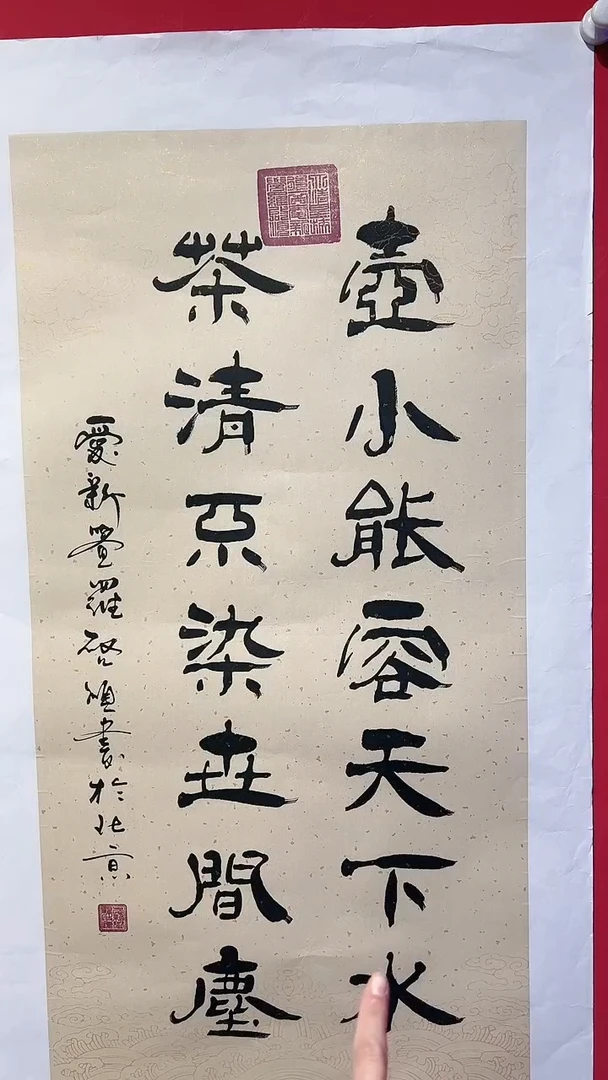 壺小能容天下水
茶清不染世間塵
愛新覺羅啓書於北京